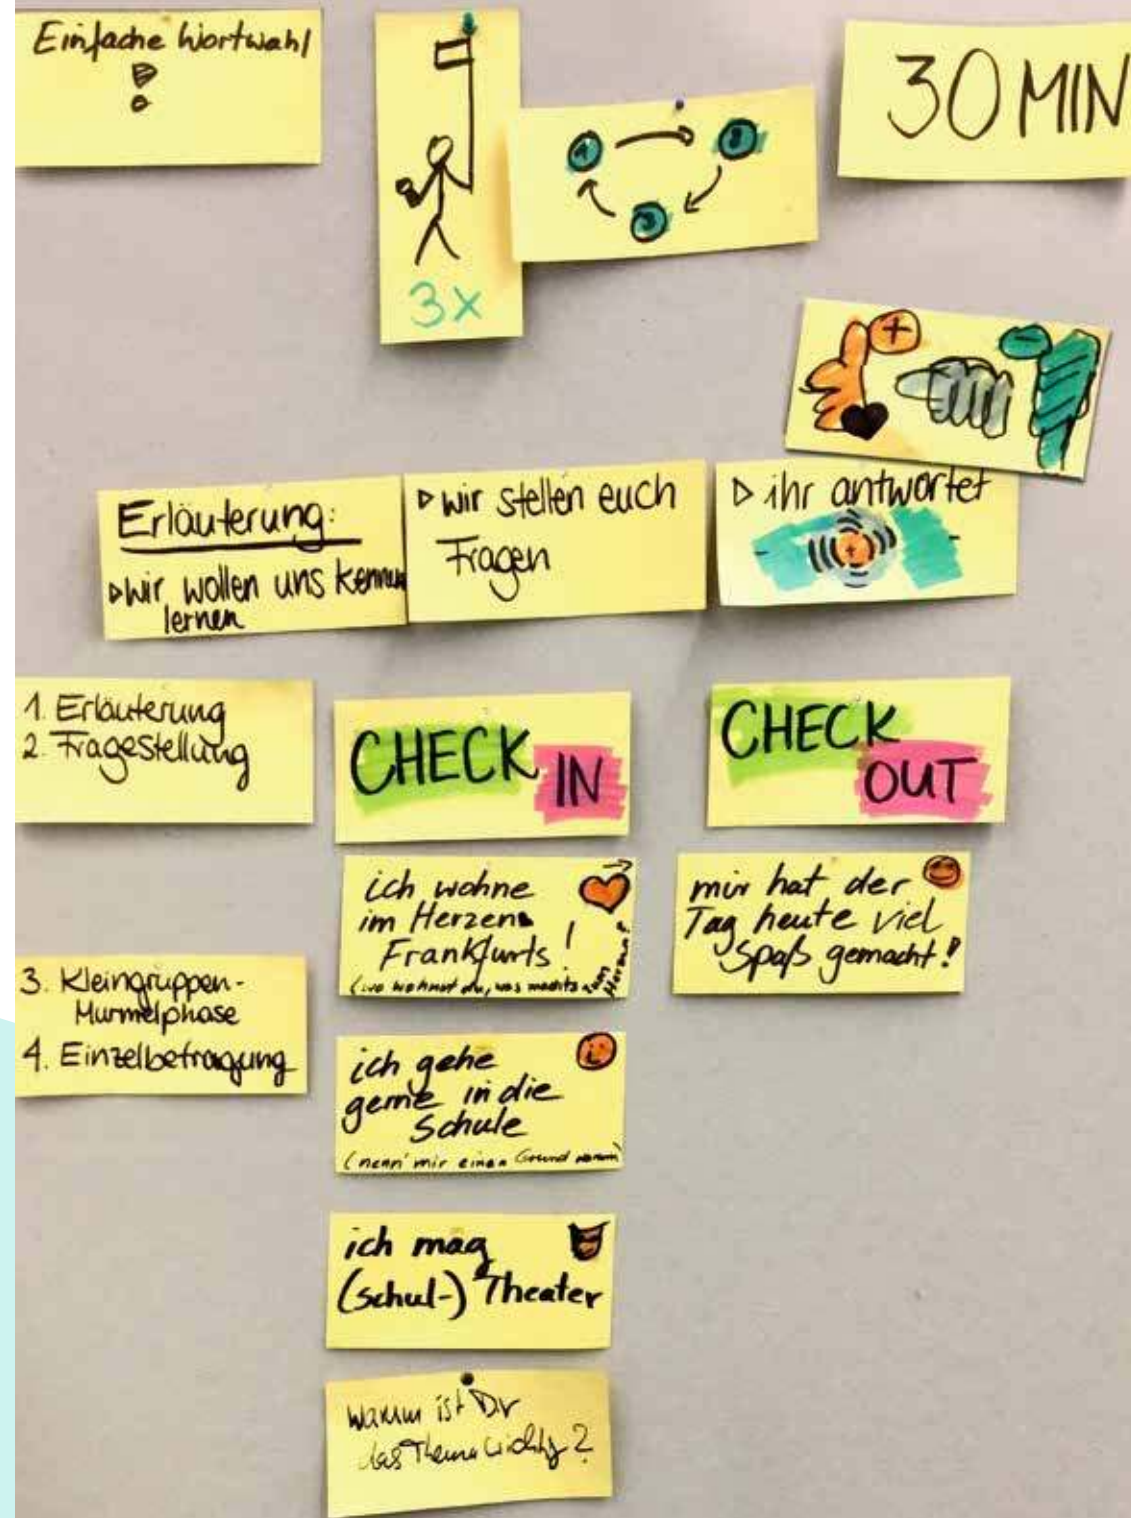 Einfache Wortwahl
!
3x
1
2
3
30 MIN
+
-
Erläuterung:
▷ wir wollen uns kennen
lernen
▷ wir stellen euch
Fragen
▷ ihr antwortet
- + -
1. Erläuterung
2. Fragestellung
CHECK
IN
CHECK
OUT
ich wohne
im Herzen
Frankfurts!
(wo wohnst du, was machts zum
Herzen?
mir hat der
Tag heute viel
Spaß gemacht!
3. Kleingruppen-
Murmelphase
4. Einzelbefragung
ich gehe
gerne in die
Schule
(nenn' mir einen Grund warum)
ich mag
(schul-) Theater
Warum ist Dir
das Thema wichtig?